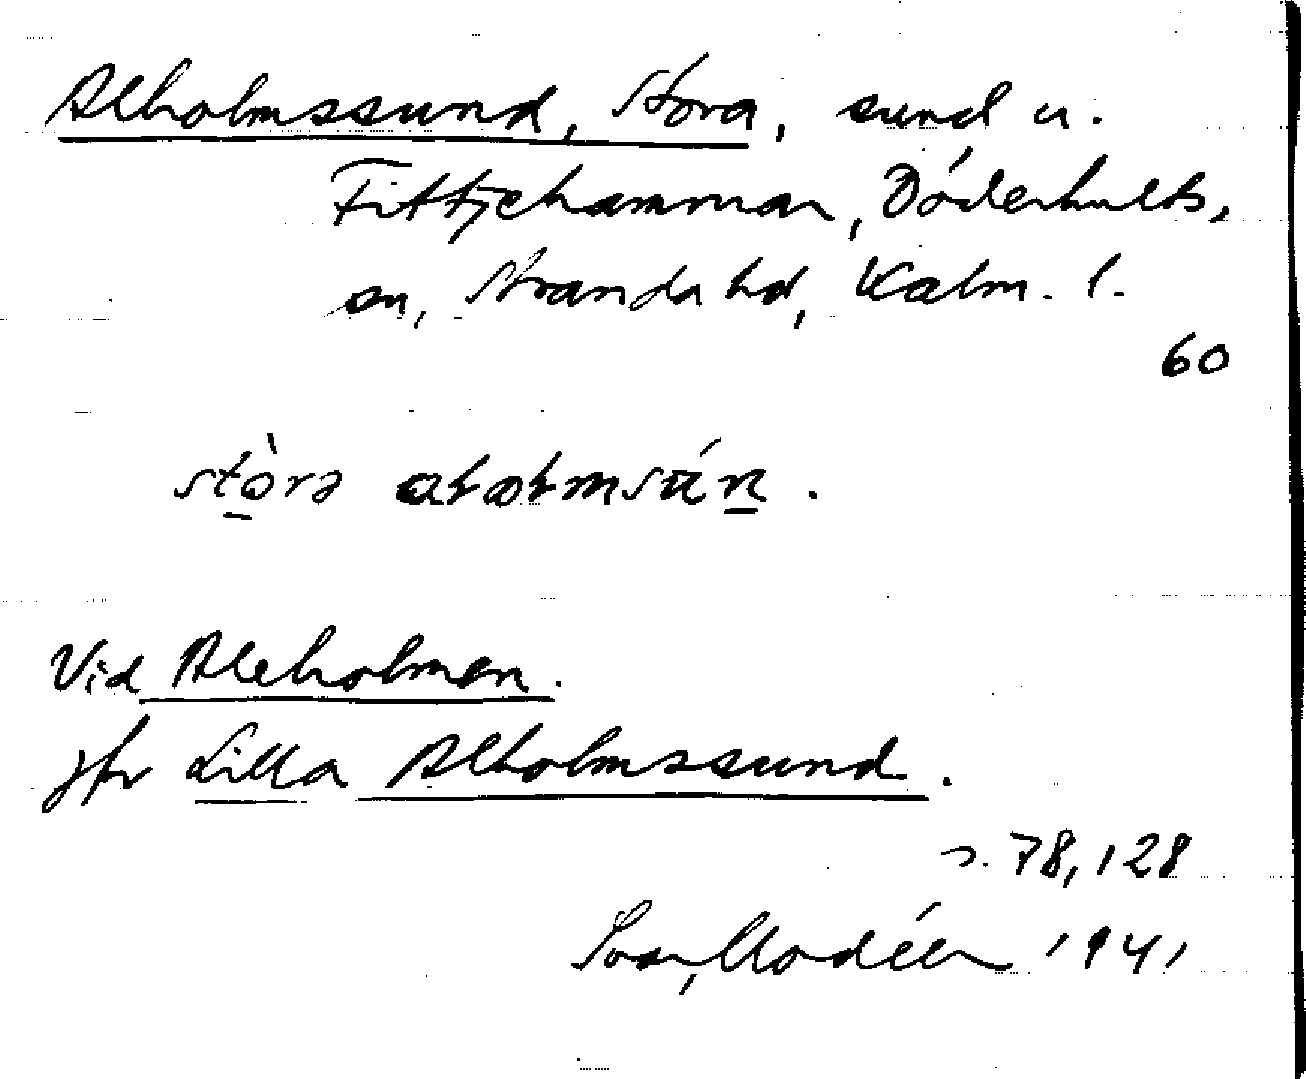 Alholmssund, Stora, sund u.
Fittjehammar, Döderhults,
sn, Stranda hd, Kalm. l.
60
stòrə alɷlmsún .
Vid Aleholmen.
jfr Lilla Alholmssund.
s. 78, 128
Modéer 1941